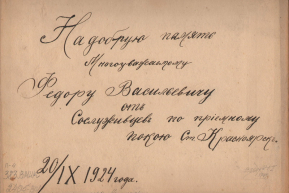 На добрую память
Многоуважаемому
Федору Васильевичу
отъ
Сослуживцевъ по пріемному
покою Ст. Красноярск.
20/IX 1924 года.